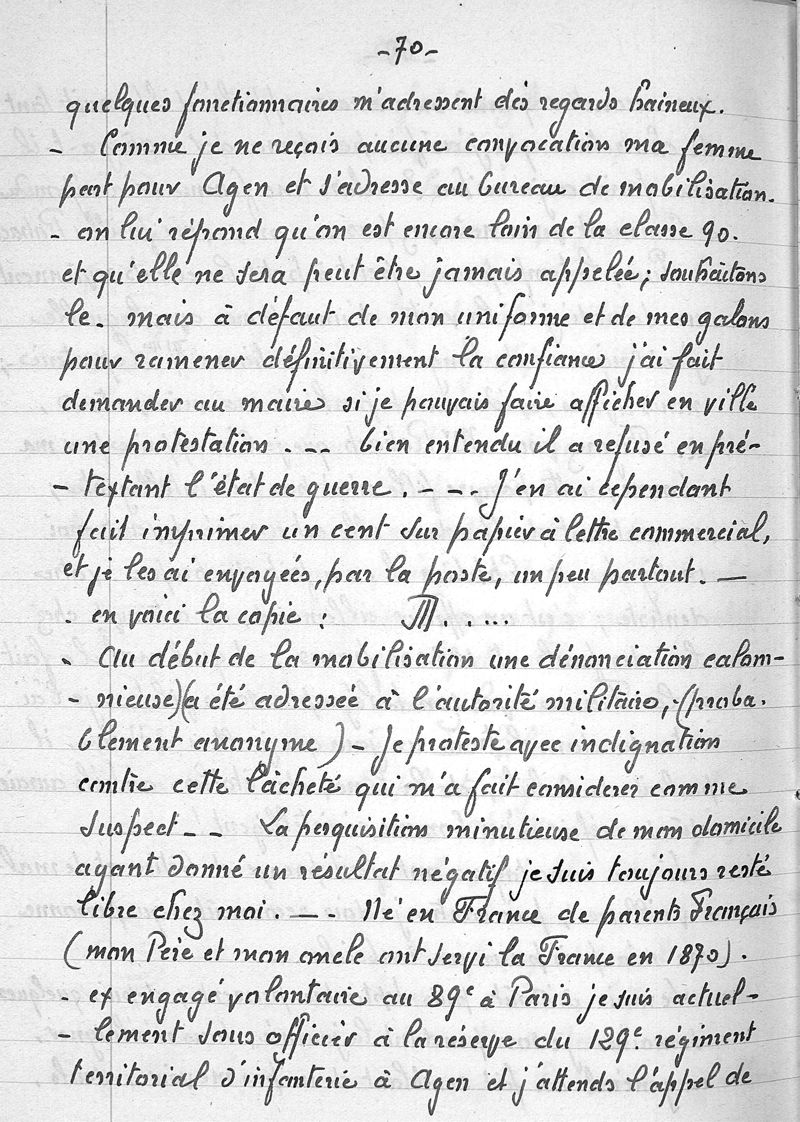 - 70 -
quelques fonctionnaires m'adressent des regards haineux.
- Comme je ne reçois aucune convocation ma femme
part pour Agen et s'adresse au bureau de mobilisation.
- on lui répond qu'on est encore loin de la classe 90.
et qu'elle ne sera peut être jamais appelée ; souhaitons
le. mais à défaut de mon uniforme et de mes galons
pour ramener définitivement la confiance j'ai fait
demander au maire si je pouvais faire afficher en ville
une protestation . -- bien entendu il a refusé en pré-
- textant l'état de guerre. - -- J'en ai cependant
fait imprimer un cent sur papier à lettre commercial,
et je les ai envoyées, par la poste, un peu partout. —
. en voici la copie :
- Au début de la mobilisation une dénonciation calom-
- nieuse)(a été adressée à l'autorité militaire, -(proba.
blement anonyme ) - Je proteste avec indignation
contre cette lâcheté qui m'a fait considerer comme
suspect - - La perquisition minutieuse de mon domicile
ayant donné un résultat négatif je suis toujours resté
libre chez moi. - -- Né en France de parents Français
(mon Père et mon oncle ont servi la France en 1870).
- ex engagé volontaire au 89e à Paris je suis actuel-
- lement sous officier à la réserve du 129e régiment
territorial d'infanterie à Agen et j'attends l'appel de